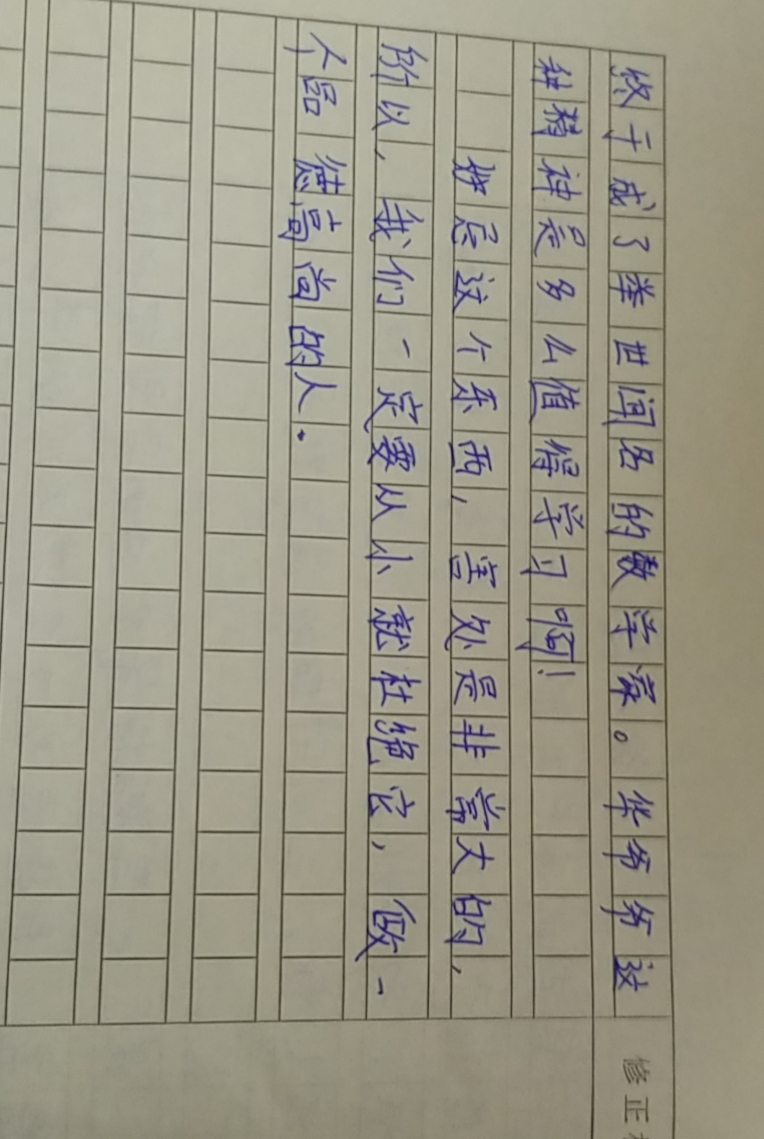 终于成了举世闻名的数学家。华爷爷这
种精神是多么值得学习啊！
妒忌这个东西，害处是非常大的，
所以，我们一定要从小就杜绝它，做一
个品德高尚的人.
修正